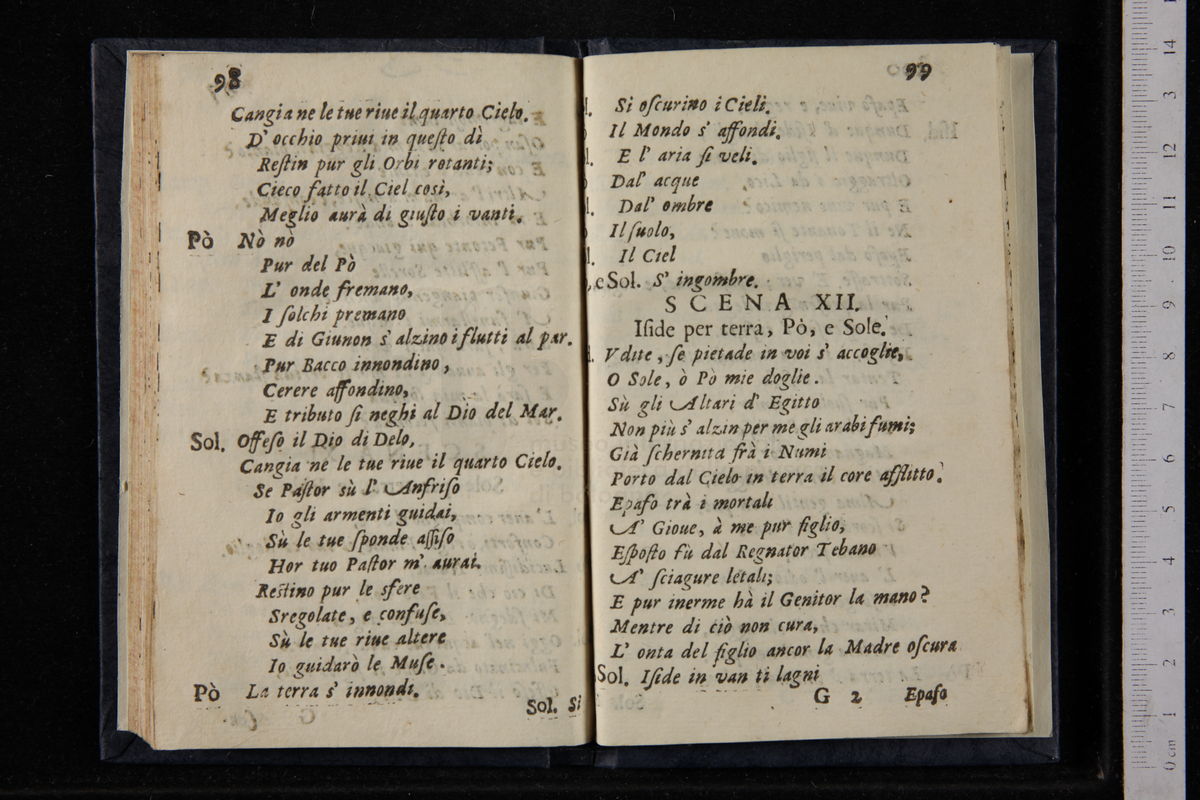 98
Cangia ne le tue riue il quarto Cielo.
D' occhio priui in queſto dì
Reſtin pur gli Orbi rotanti;
Cieco fatto il Ciel così,
Meglio aurà di giuſto i vanti.
Pò Nò nò
Pur del Pò
L' onde fremano,
I ſolchi premano
E di Giunon s' alzino i flutti al par.
Pur Bacco innondino,
Cerere affondino,
E tributo ſi neghi al Dio del Mar.
Sol. Offeſo il Dio di Delo,
Cangia ne le tue riue il quarto Cielo.
Se Paſtor sù l' Anfriſo
Io gli armenti guidai,
Sù le tue ſponde aſſiſo
Hor tuo Paſtor m' aurai.
Reſtino pur le sfere
Sregolate, e confuſe,
Sù le tue riue altere
Io guidarò le Muſe.
Pò La terra s' innondi.
Sol. Si
99
l. Si oſcurino i Cieli.
Il Mondo s' affondi.
l. E l' aria ſi veli.
Dal' acque
l. Dal' ombre
Il ſuolo,
l. Il Ciel
, e Sol. S' ingombre.
SCENA XII.
Iſide per terra, Pò, e Sole.
Vdite, ſe pietade in voi s' accoglie,
O Sole, ò Pò mie doglie.
Sù gli Altari d' Egitto
Non più s' alzin per me gli arabi fumi;
Già ſchernita frà i Numi
Porto dal Cielo in terra il core afflitto.
Epafo trà i mortali
A' Gioue, à me pur figlio,
Eſpoſto fù dal Regnator Tebano
A' ſciagure letali;
E pur inerme hà il Genitor la mano?
Mentre di ciò non cura,
L' onta del figlio ancor la Madre oſcura
Sol. Iſide in van ti lagni
G 2 Epafo